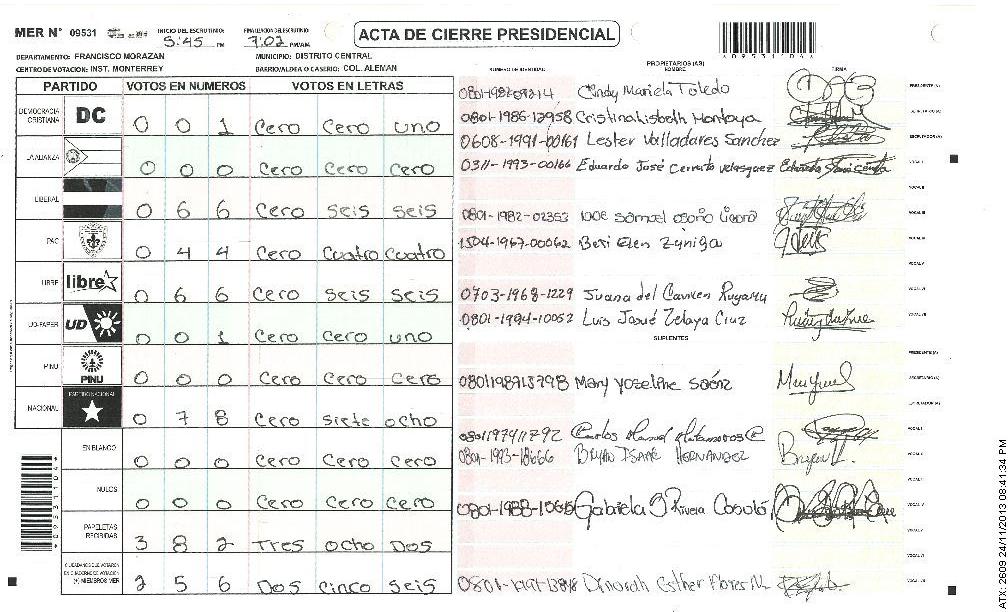 MER N° 09531 INICIO DEL ESCRUTINIO: 5:45 PM FINALIZACION DEL ESCRUTINIO: 7:02 PM/AM
ACTA DE CIERRE PRESIDENCIAL
*09531104*
DEPARTAMENTO: FRANCISCO MORAZAN MUNICIPIO: DISTRITO CENTRAL
CENTRO DE VOTACION: INST. MONTERREY BARRIO/ALDEA O CASERIO: COL. ALEMAN
PARTIDO VOTOS EN NUMEROS VOTOS EN LETRAS
DEMOCRACIA CRISTIANA DC 0 0 1 Cero Cero uno
LA ALIANZA 0 0 0 Cero Cero Cero
LIBERAL 0 6 6 Cero seis seis
PAC 0 4 4 Cero Cuatro Cuatro
LIBRE libre 0 6 6 Cero seis seis
UD-FAPER UD 0 0 1 Cero Cero uno
PINU PINU 0 0 0 Cero Cero Cero
NACIONAL PARTIDO NACIONAL 0 7 8 Cero siete ocho
EN BLANCO 0 0 0 Cero Cero Cero
NULOS 0 0 0 Cero Cero Cero
PAPELETAS RECIBIDAS 3 8 2 Tres ocho Dos
CIUDADANOS QUE VOTARON EN CUADERNO DE VOTACION (+) MIEMBROS MER 2 5 6 Dos Cinco Seis
PROPIETARIOS (AS)
NUMERO DE IDENTIDAD NOMBRE FIRMA
Cindy Mariela Toledo PRESIDENTE (A)
0801-1986-12958 Cristina Lisbeth Montoya SECRETARIO (A)
0608-1991-00161 Lester Valladares Sanchez ESCRUTADOR (A)
0311-1993-00166 Eduardo José Cerrato Velasquez VOCAL I
VOCAL II
0801-1982-02353 VOCAL III
1504-1967-00062 Zuniga
0703-1968-1229 Juana del Carmen
0801-1994-10052 Luis Josué Zelaya Cruz
SUPLENTES
PRESIDENTE (A)
0801198713798 Mary Yoseline Saénz SECRETARIO (A)
ESCRUTADOR (A)
0801197411792 Carlos Manuel Matamoros VOCAL I
BRYAN ISAAC HERNANDEZ
Gabriela Rivera
Dinorah Esther Flores M.
ATX-2609 24/11/2013 08:41:34 PM